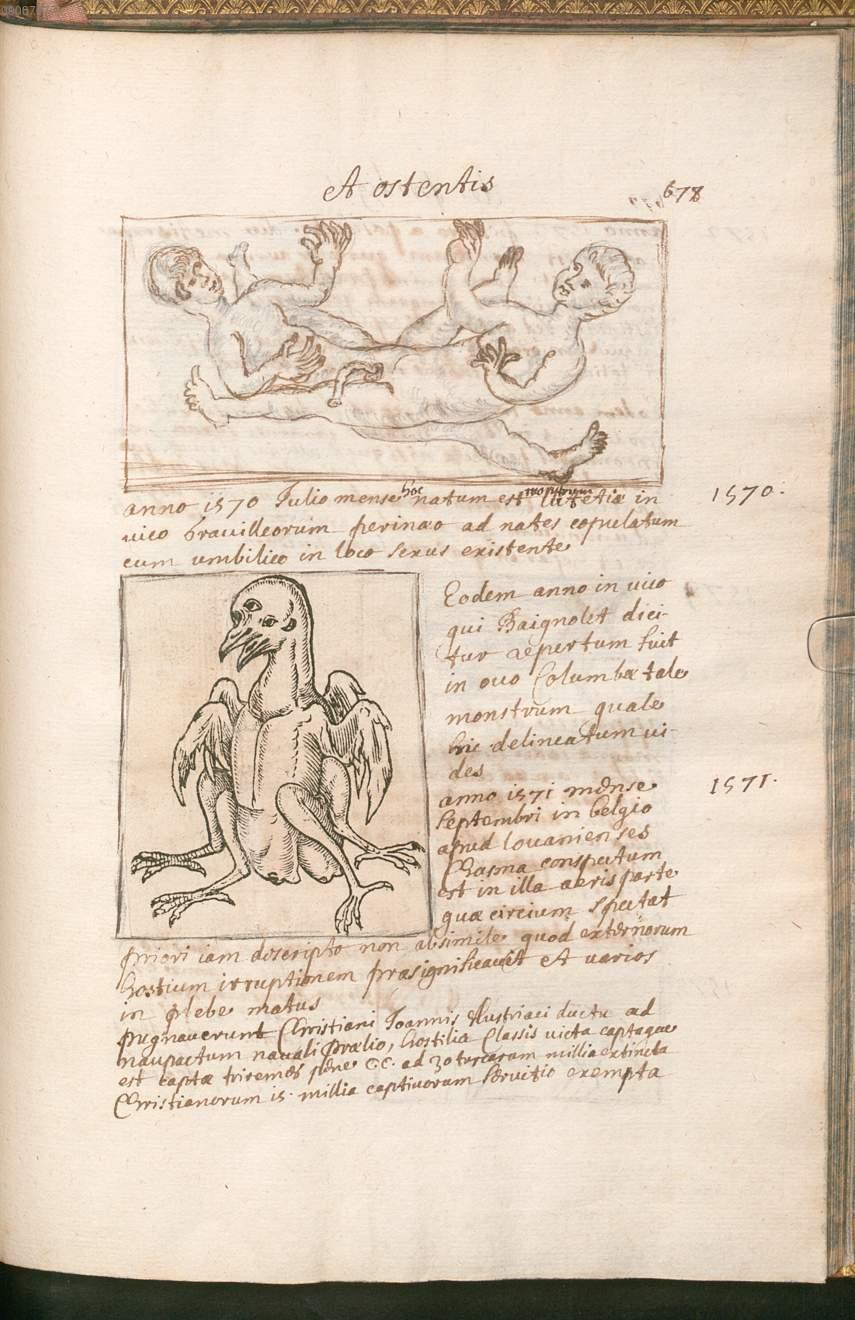 et ostentis
678
anno 1570 Iulio mense hoc natum est monstrum lutetiæ in
1570.
vico Gravilleorum perinæo ad nates copulatum
cum umbilico in loco sexus existente
Eodem anno in vico
qui Baignolet dici-
tur repertum fuit
in ovo Columbæ tale
monstrum quale
hic delineatum vi-
des
anno 1571 mense
1571.
septembri in belgio
apud louanienses
Chasma conspectum
est in illa aeris parte
quæ circium spectat
priori iam descripto non absimile quod externorum
hostium irruptionem præsignificavit et varios
in plebe motus
pugnauerunt Christiani Ioannis Austriaci ductu ad
naupactum navali prælio, hostilis Classis victa captaque
est captæ triremes pene CC. ad 20 turcarum millia extincta
Christianorum 15. millia captivorum servitio exempta